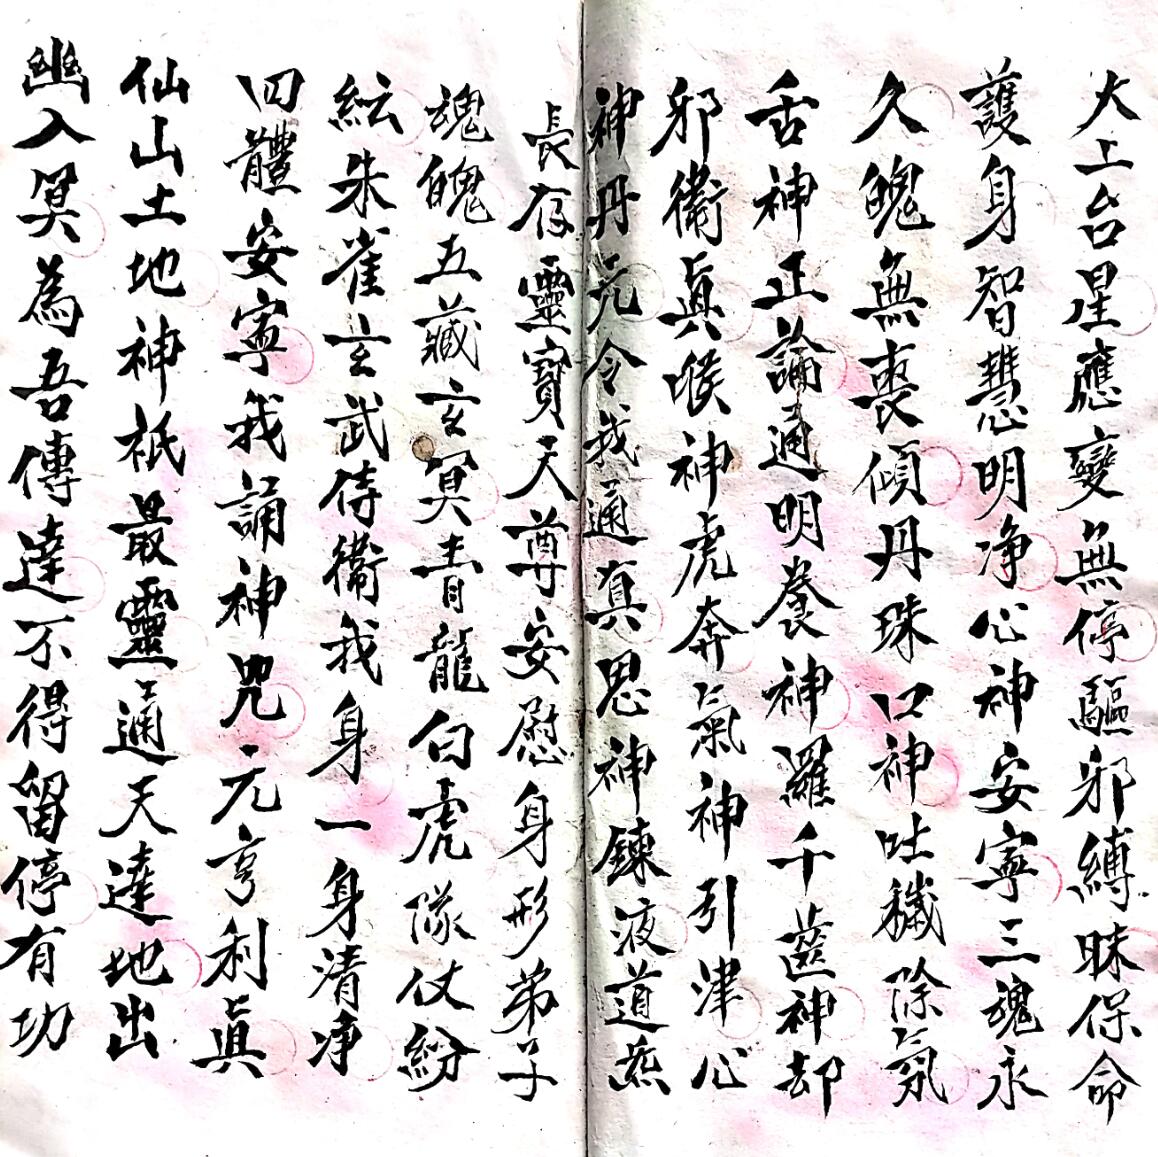 大上台星應變無停驅邪縛昧保命
護身智慧明净心神安寧三魂永
久魄無喪傾丹珠口神吐穢除氛
舌神正論通明養神羅千齒神却
邪衛眞喉神虎奔氣神引津心
神丹元令我通真思神鍊液道炁
長存靈寶天尊安慰身形弟子
魂魄五藏玄冥青龍白虎隊仗紛
紜朱雀玄武侍衛我身一身清净
四體安寧我誦神咒元亨利眞
仙山土地神祇最靈通天達地出
幽入冥為吾傳達不得留停有功